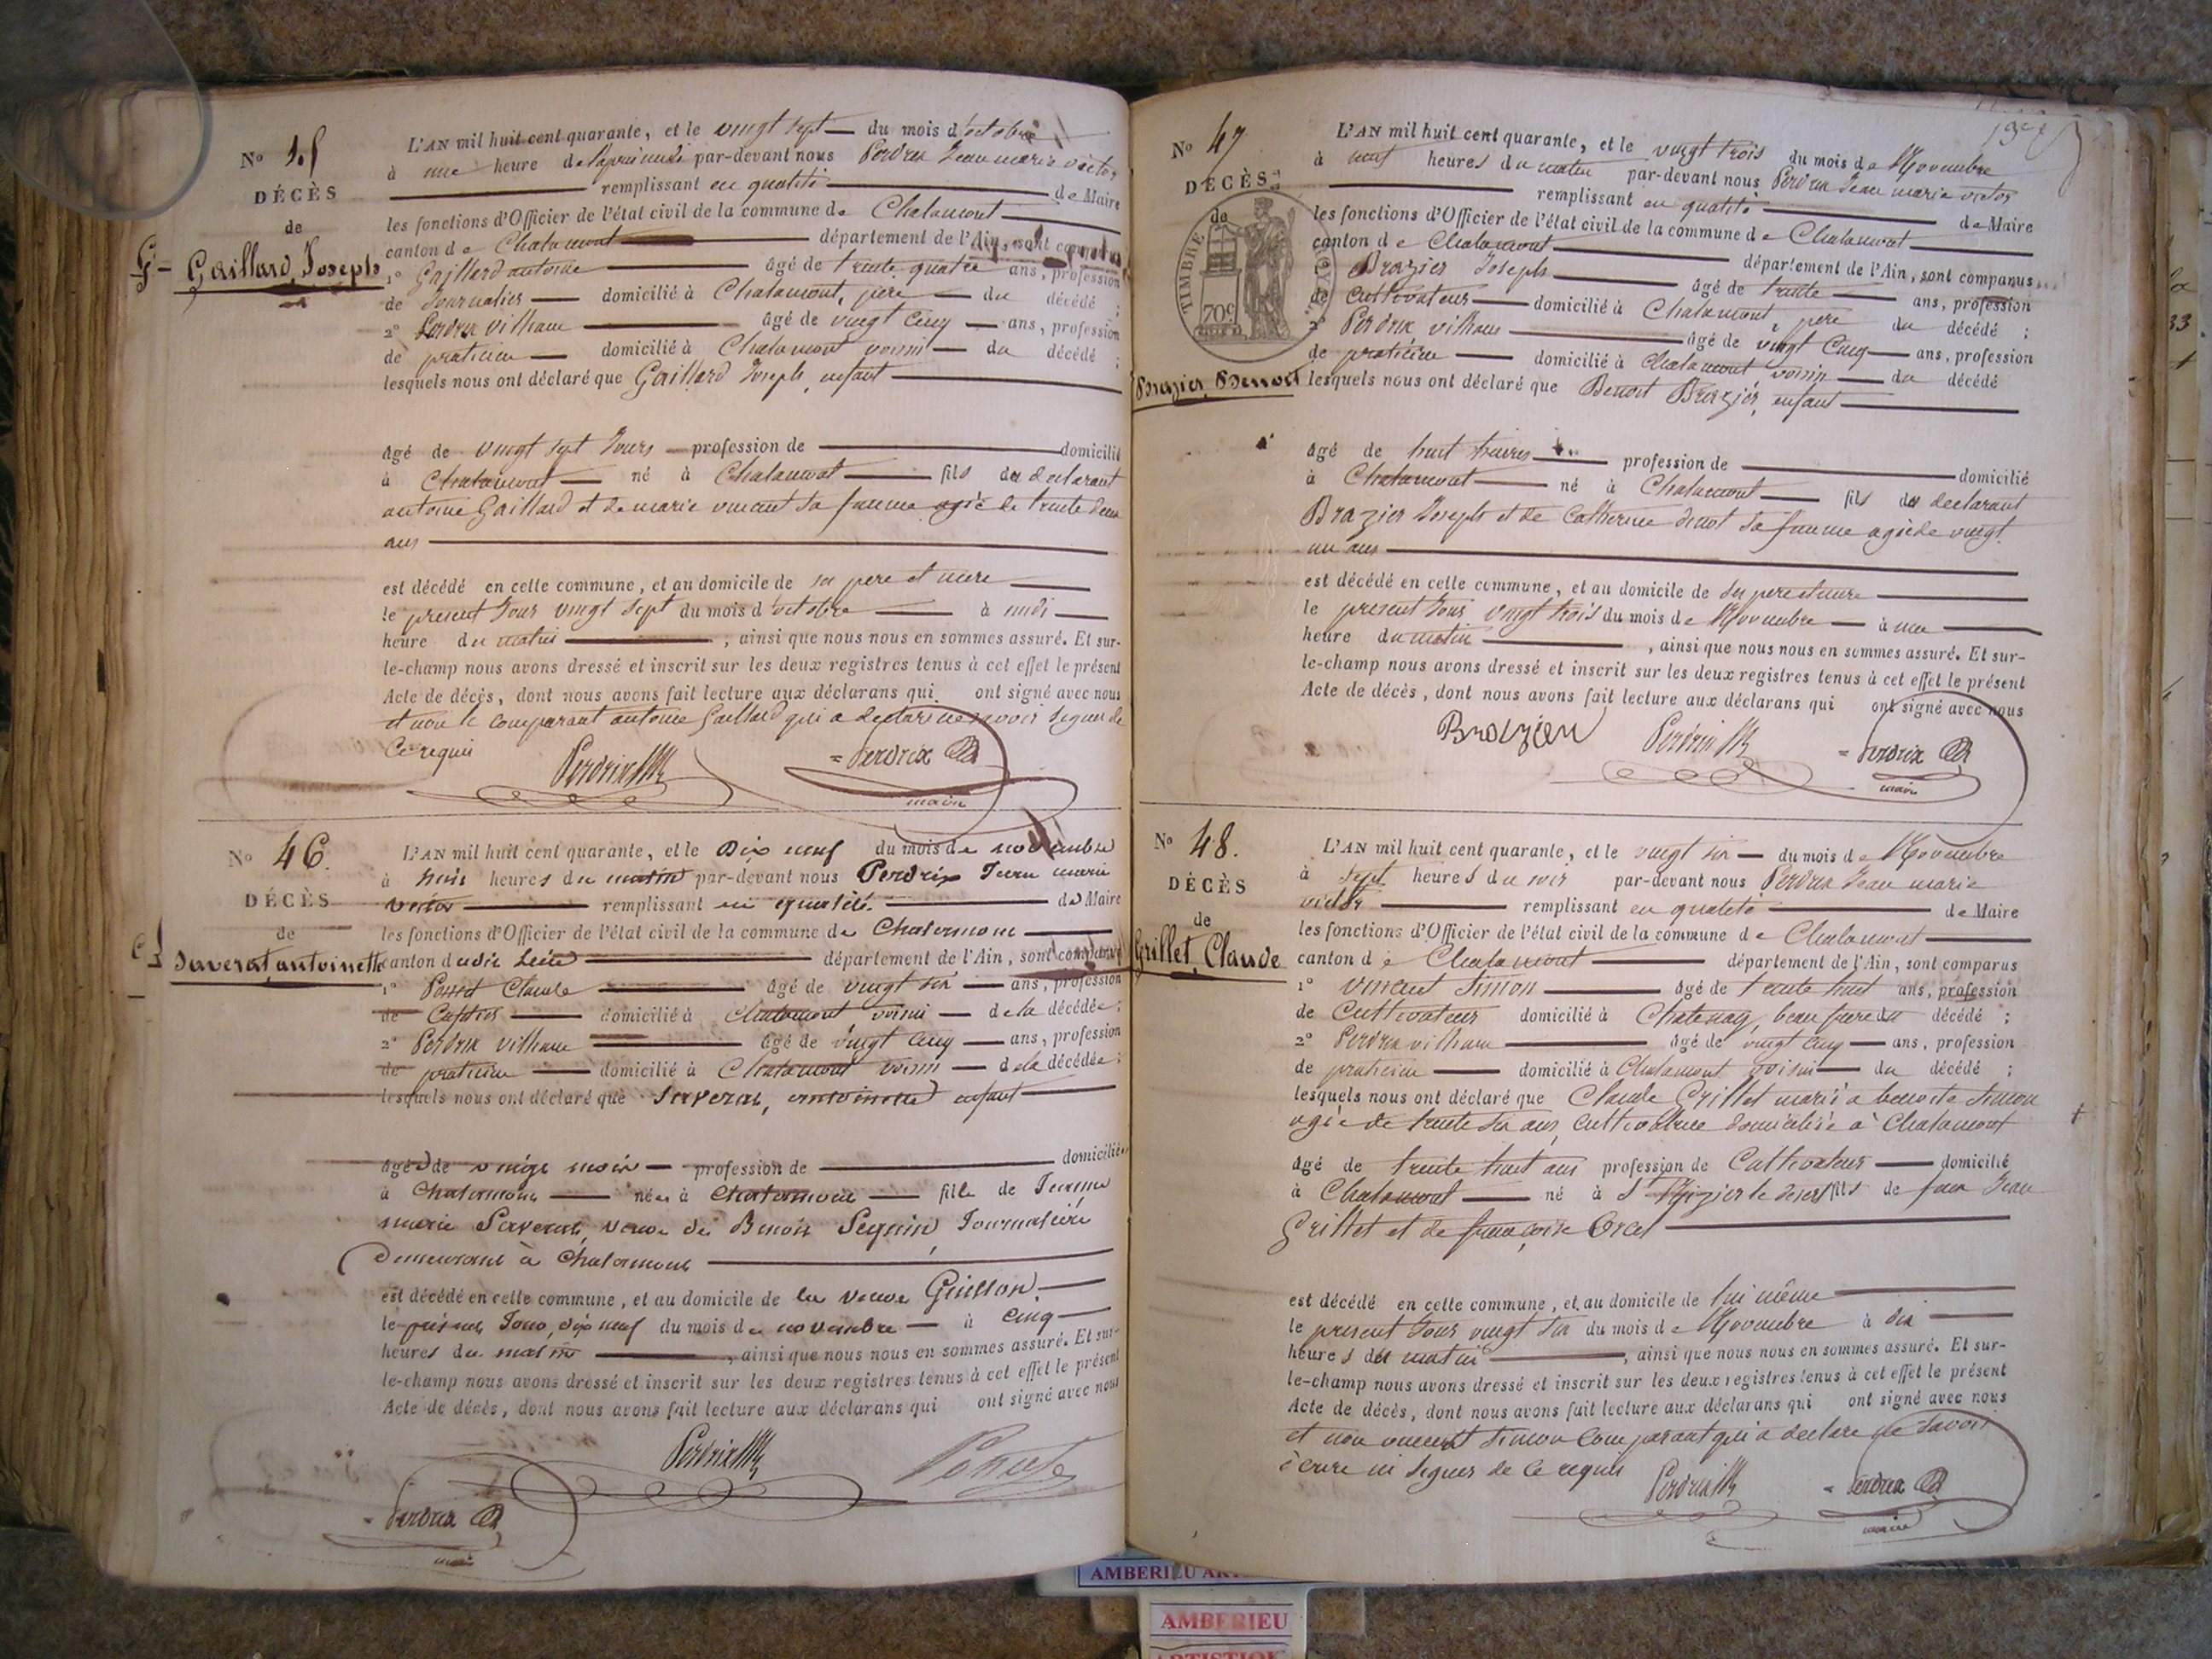 No 45
DÉCÈS
de
G- Gaillard Joseph
L'AN mil huit cent quarante, et le vingt sept du mois d'octobre
à une heure de l'après midi par-devant nous Perdrix Jean marie victor
remplissant en qualité de Maire
les fonctions d'Officier de l'état civil de la commune de Chalamont
canton de Chalamont département de l'Ain, sont comparus
1° Gaillard antoine âgé de trente quatre ans, profession
de Journalier domicilié à Chalamont, père du décédé ;
2° Perdrix vilhaume âgé de vingt cinq ans, profession
de praticien domicilié à Chalamont voisin du décédé ;
lesquels nous ont déclaré que Gaillard Joseph, enfant
âgé de vingt sept Jours profession de domicilié
à Chalamont né à Chalamont fils du declarant
antoine Gaillard et de marie vincent sa femme agée de trente deux
ans
est décédé en cette commune, et au domicile de ses pere et mere
le present Jour vingt sept du mois d'octobre à midi
heure du matin , ainsi que nous nous en sommes assuré. Et sur-
le-champ nous avons dressé et inscrit sur les deux registres tenus à cet effet le présent
Acte de décès, dont nous avons fait lecture aux déclarans qui ont signé avec nous
et non le comparant antoine Gaillard qui a declaré ne savoir signer de
ce requis
Perdrix
= Perdrix
maire
No 46.
DÉCÈS
de
Saverat, antoinette
L'AN mil huit cent quarante, et le Dix neuf du mois de novembre
à huit heures du matin par-devant nous Perdrix Jean marie
victor remplissant en qualité de Maire
les fonctions d'Officier de l'état civil de la commune de Chalamont
canton dudit Lieu département de l'Ain, sont comparus
1° Claude âgé de vingt six ans, profession
de domicilié à Chalamont voisin de la décédée ;
2° Perdrix vilhaume âgé de vingt cinq ans, profession
de praticien domicilié à Chalamont voisin de la décédée ;
lesquels nous ont déclaré que Saverat, antoinette enfant
âgée de mois profession de domiciliée
à Chalamont née à Chalamont fille de Jeanne
marie Saverat, veuve de Benoit Seguin, Journalière
Demeurant à Chalamont
est décédé en cette commune, et au domicile de la veuve
le présent Jour, dix neuf du mois de novembre à cinq
heures du matin , ainsi que nous nous en sommes assuré. Et sur-
le-champ nous avons dressé et inscrit sur les deux registres tenus à cet effet le présent
Acte de décès, dont nous avons fait lecture aux déclarans qui ont signé avec nous
Perdrix
= Perdrix
maire
No 47
DÉCÈS
de
TIMBRE ROYAL
70c
Brazier, Benoit
L'AN mil huit cent quarante, et le vingt trois du mois de Novembre
à neuf heures du matin par-devant nous Perdrix Jean marie victor
remplissant en qualité de Maire
les fonctions d'Officier de l'état civil de la commune de Chalamont
canton de Chalamont département de l'Ain, sont comparus
Brazier Joseph âgé de trente ans, profession
de cultivateur domicilié à Chalamont, père du décédé ;
2° Perdrix vilhaume âgé de vingt cinq ans, profession
de praticien domicilié à Chalamont voisin du décédé
lesquels nous ont déclaré que Benoit Brazier, enfant
âgé de huit heures profession de domicilié
à Chalamont né à Chalamont fils du declarant
Brazier Joseph et de Catherine sa femme agée de vingt
un ans
est décédé en cette commune, et au domicile de ses pere et mere
le present Jour vingt trois du mois de Novembre à une
heure du matin , ainsi que nous nous en sommes assuré. Et sur-
le-champ nous avons dressé et inscrit sur les deux registres tenus à cet effet le présent
Acte de décès, dont nous avons fait lecture aux déclarans qui ont signé avec nous
Brazier
Perdrix
= Perdrix
maire
No 48.
DÉCÈS
de
Grillet, Claude
L'AN mil huit cent quarante, et le vingt six du mois de Novembre
à sept heures du soir par-devant nous Perdrix Jean marie
victor remplissant en qualité de Maire
les fonctions d'Officier de l'état civil de la commune de Chalamont
canton de Chalamont département de l'Ain, sont comparus
1° vincent Simon âgé de trente huit ans, profession
de Cultivateur domicilié à Chatenay, beau frere du décédé ;
2° Perdrix vilhaume âgé de vingt cinq ans, profession
de praticien domicilié à Chalamont voisin du décédé ;
lesquels nous ont déclaré que Claude Grillet marié a benoite Simon
agée de trente six ans, cultivatrice domiciliée à Chalamont
âgé de trente huit ans profession de Cultivateur domicilié
à Chalamont né à St Nizier le desert fils de feu Jean
Grillet et de françoise Orcel
est décédé en cette commune, et au domicile de lui même
le present Jour vingt six du mois de Novembre à dix
heures du matin , ainsi que nous nous en sommes assuré. Et sur-
le-champ nous avons dressé et inscrit sur les deux registres tenus à cet effet le présent
Acte de décès, dont nous avons fait lecture aux déclarans qui ont signé avec nous
et non vincent Simon comparant qui a declaré ne savoir
ècrire ni signer de ce requis
Perdrix
= Perdrix
maire
AMBERIEU
AMBERIEU